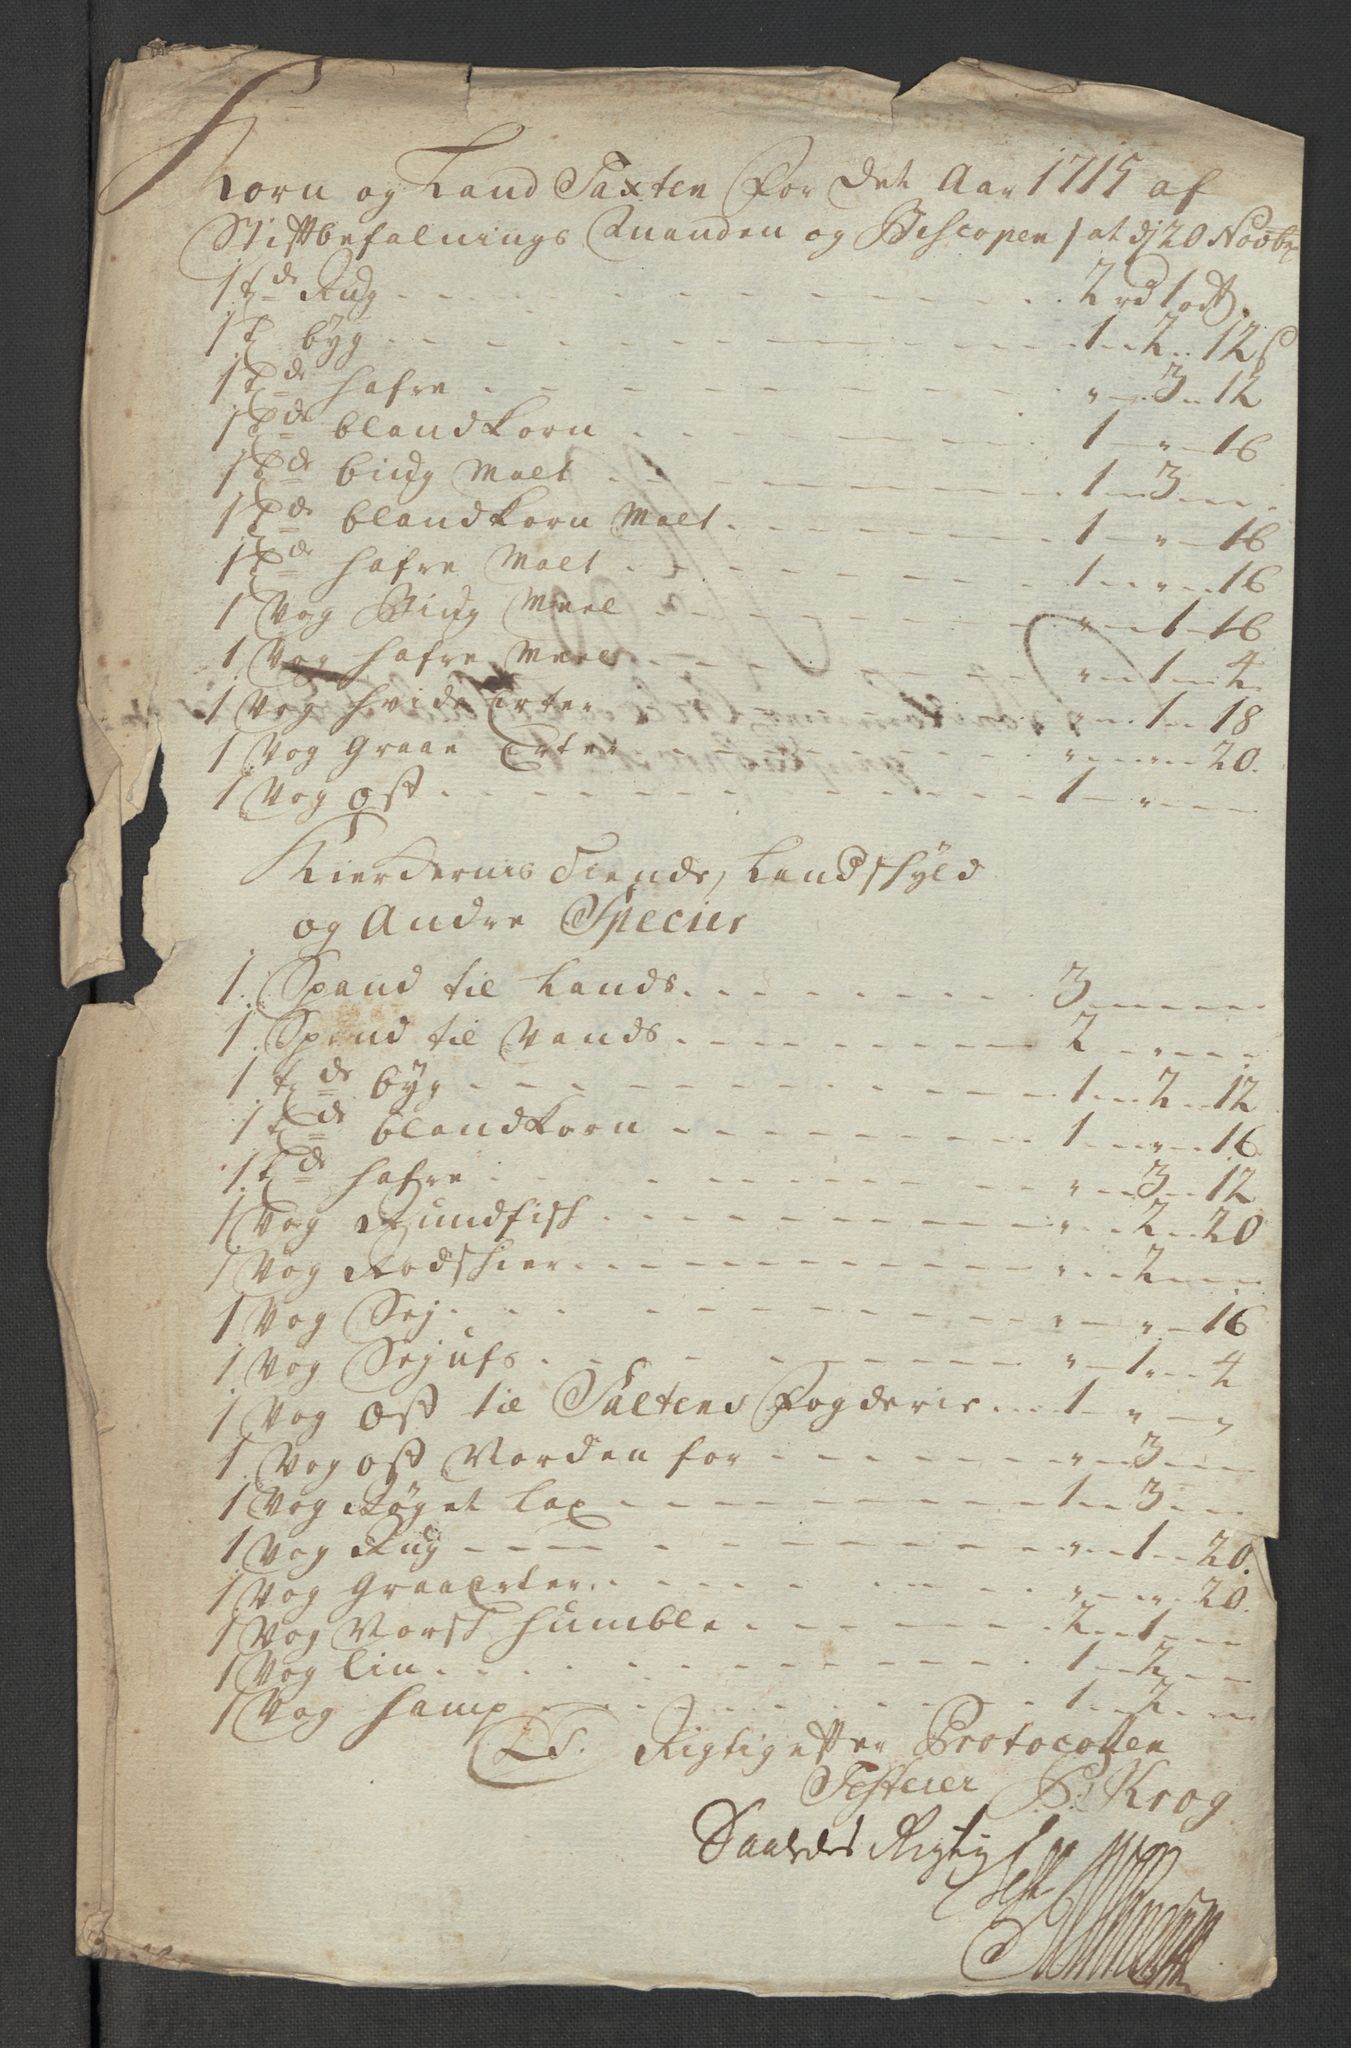 Korn og Land Taxten For Det Aar 1715 af
Stiftbefalnings Manden og Biscopen sat dj 20 Novbr
1 tde Rug - - - 2 rd 1 ort
1 t byg - - - 1 - 2 - 12 s
1 tde hafre - - - " - 3 - 12
1 tde blandkorn - - - 1 - " - 16
1 tde biug Malt - - - 1 - 3 - -
1 tde blandkorn Malt - - - 1 - " - 16
1 tde hafre Malt - - - 1 - " - 16
1 Vog Biug Meel - - - " - 1 - 16
1 Vog hafre Meel - - - " - 1 - 4
1 Vog hvide Erter - - - " - 1 - 18
1 Vog Graae Erter - - - " - " - 20.
1 Vog ost - - - 1 - " - -
Kierckernis Tiende, Landskyld
og Andre Specier
1. Spand til Lands - - - 3 - - -
1. Spand til Vands - - - 2 - " - -
1 tde byg - - - 1 - 2 - 12
1 tde blandkorn - - - 1 - " - 16
1 tde hafre - - - " - 3 - 12
1 Vog Rundfisk - - - " - 2 - 20
1 Vog Rodskier - - - " - 2 - -
1 Vog Sej - - - " - " - 16
1 Vog Sejufs - - - " - 1 - 4
1 Vog ost til Saltens Fogderie - - - 1 - " - "
1 Vog ost Norden for - - - " - 3 - -
1 Vog Røget lax - - - 1 - 3 - -
1 Vog Rug - - - " - 1 - 20.
1 Vog Graa Erter - - - " - " - 20.
1 Vog Norsk humble - - - 2 - 1 - -
1 Vog lin - - - 1 - 2 - -
1 Vog hamp - - - 1 - 2 - -
LS. Rigtig efter Protocollen
Testerer P: Krog
Saaledes Rigtig
Test